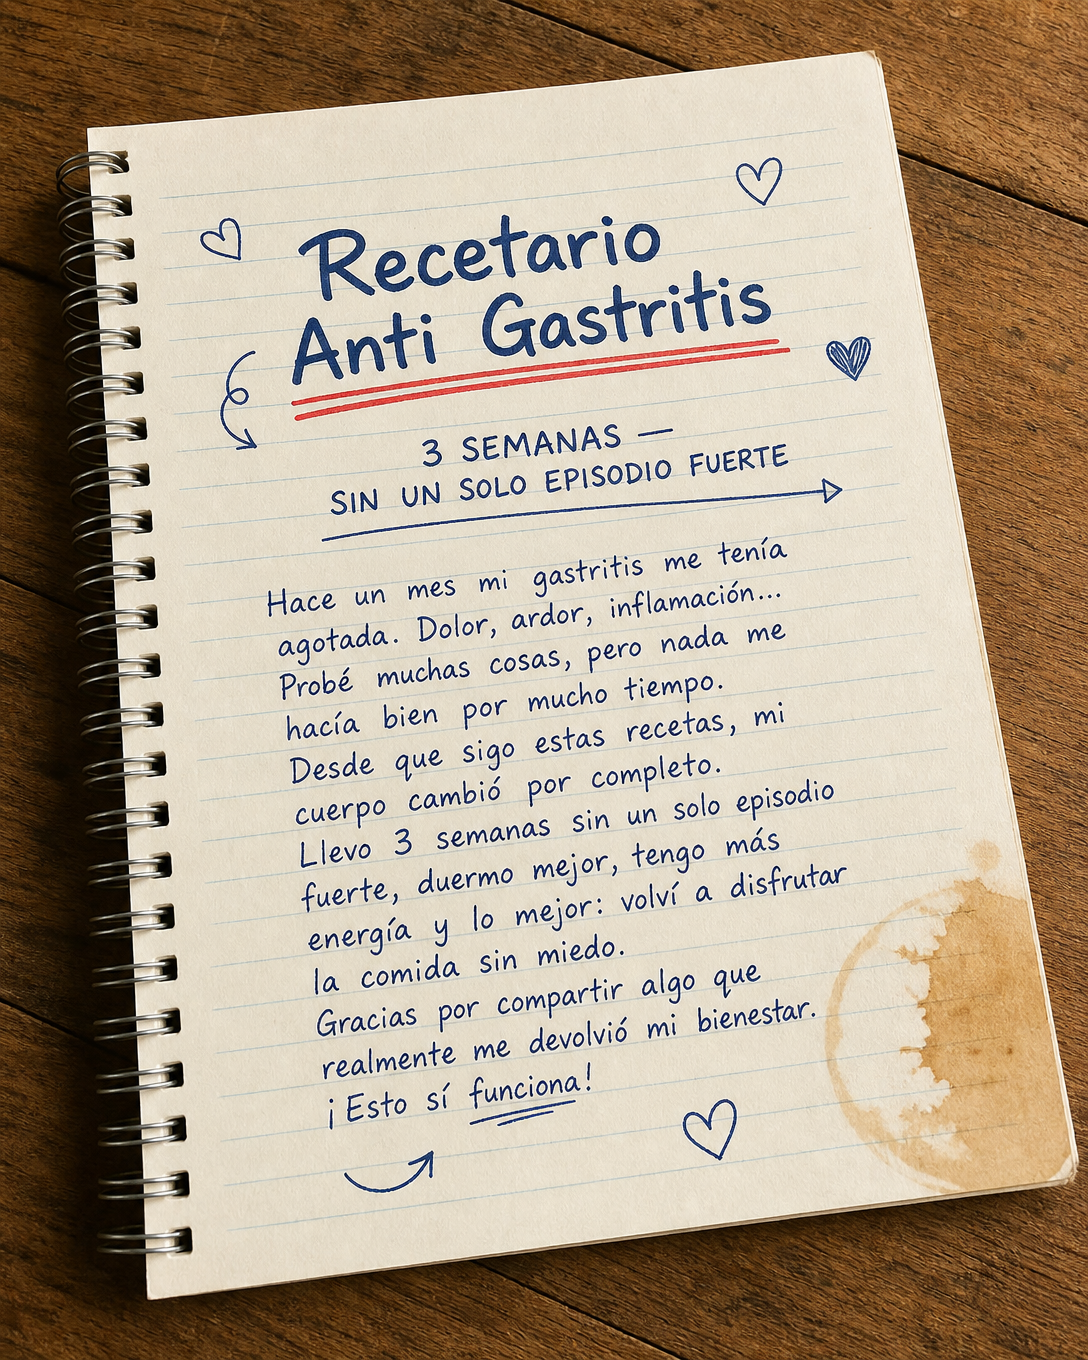 Recetario
Anti Gastritis
3 SEMANAS —
SIN UN SOLO EPISODIO FUERTE
Hace un mes mi gastritis me tenía
agotada. Dolor, ardor, inflamación...
Probé muchas cosas, pero nada me
hacía bien por mucho tiempo.
Desde que sigo estas recetas, mi
cuerpo cambió por completo.
Llevo 3 semanas sin un solo episodio
fuerte, duermo mejor, tengo más
energía y lo mejor: volví a disfrutar
la comida sin miedo.
Gracias por compartir algo que
realmente me devolvió mi bienestar.
¡Esto sí funciona!